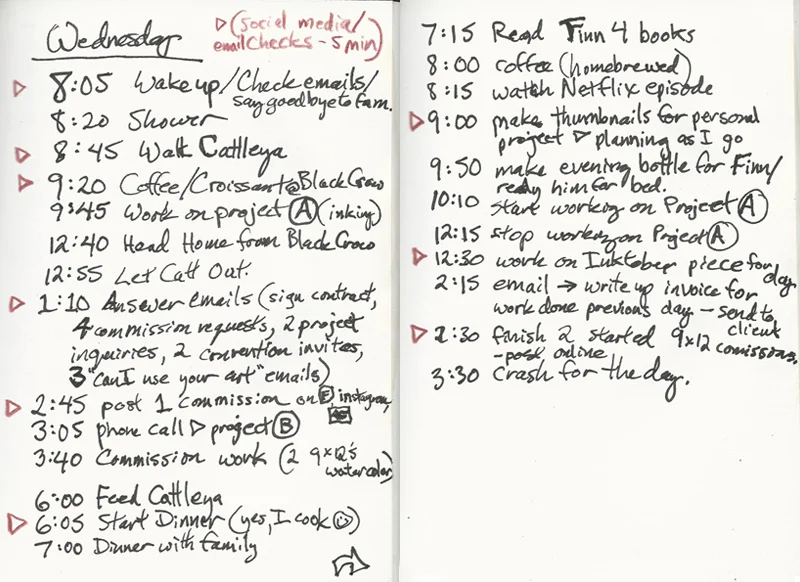 Wednesday
▷(social media/
email checks - 5 min)
▷ 8:05 Wake up/Check emails/
say goodbye to fam.
8:20 Shower
▷ 8:45 Walk Cattleya
▷ 9:20 Coffee/Croissant@BlackCrow
9:45 Work on project Ⓐ (inking)
12:40 Head Home from BlackCrow
12:55 Let Catt Out.
▷ 1:10 Answer emails (sign contract,
4 commission requests, 2 project
inquiries, 2 convention invites,
3 "can I use your art" emails)
▷ 2:45 post 1 commission on F, instagram,
3:05 phone call ▷ project Ⓑ
3:40 Commission work (2 9x12's
watercolor)
6:00 Feed Cattleya
▷ 6:05 Start Dinner (yes, I cook ☺)
7:00 Dinner with family
7:15 Read Finn 4 books
8:00 coffee (homebrewed)
8:15 watch Netflix episode
▷ 9:00 make thumbnails for personal
project ▷ planning as I go
9:50 make evening bottle for Finn/
ready him for bed.
10:10 start working on Project Ⓐ
12:15 stop working on Project Ⓐ
▷ 12:30 work on Inktober piece for day
2:15 email → write up invoice for
work done previous day - send to
client
▷ 2:30 finish 2 started 9x12 comissions.
- post online
3:30 Crash for the day.